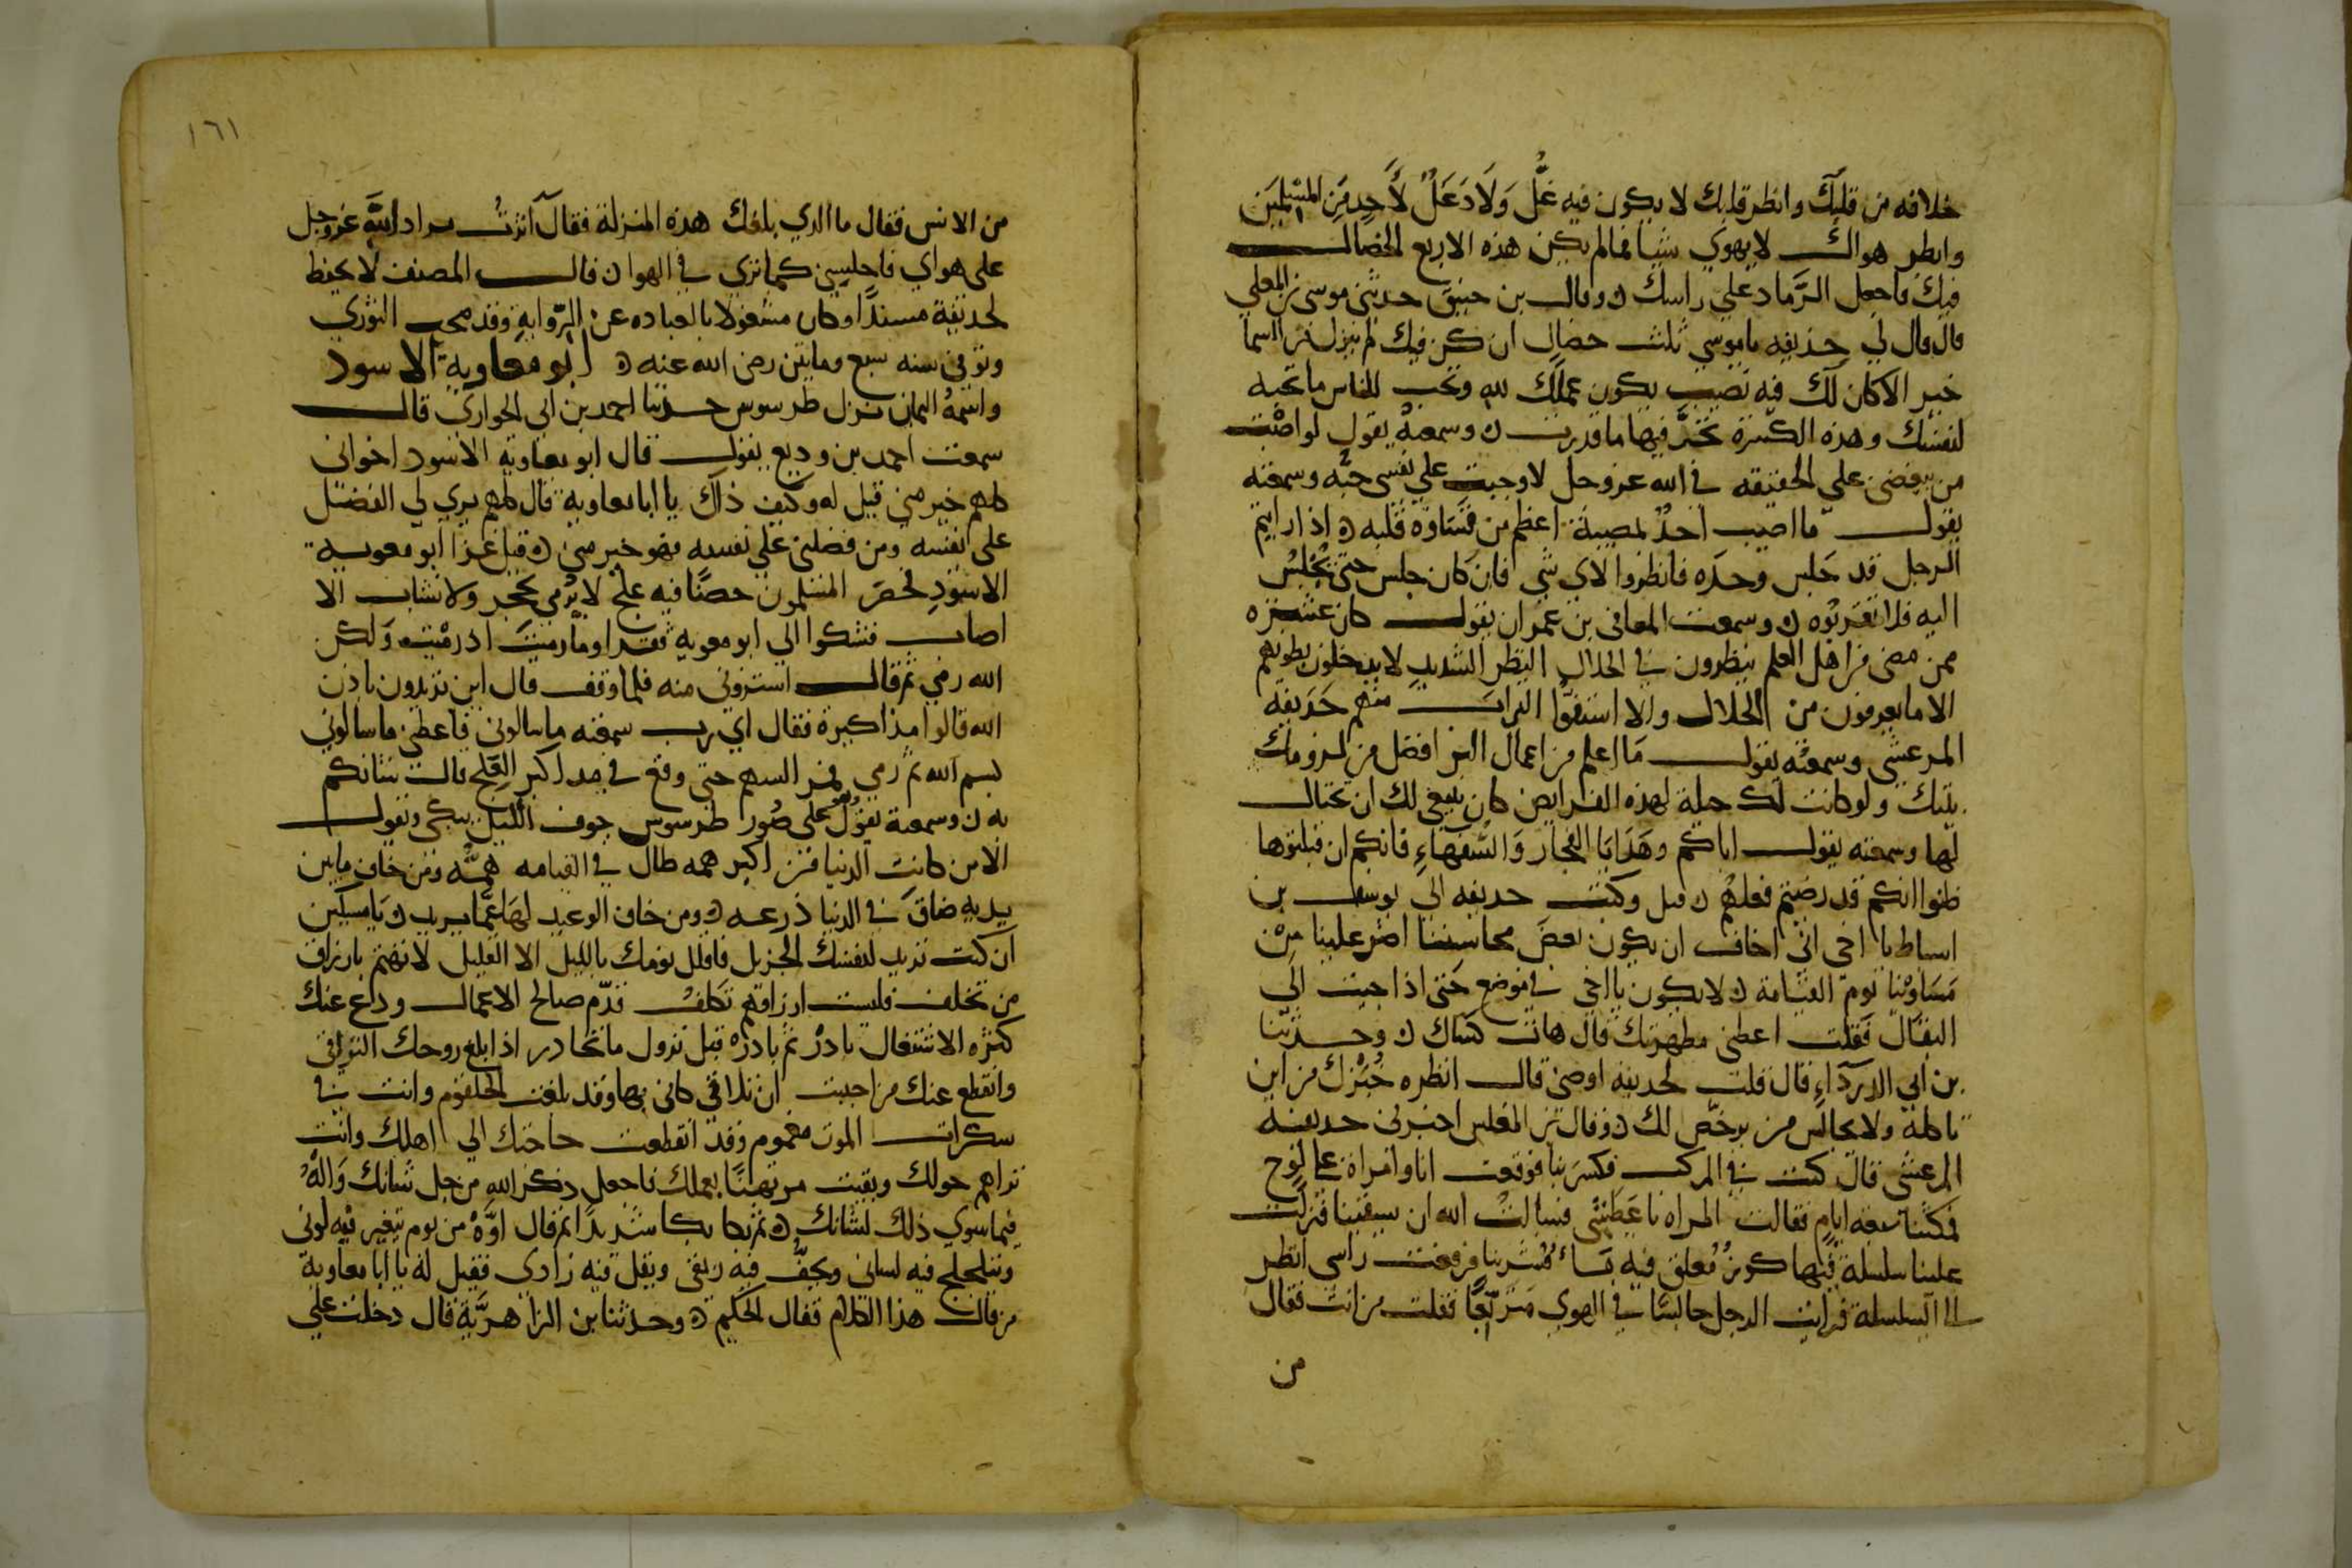 خلافه من قلبك وانظر قلبك لا يكون فيه غل ولا دغل لأحد من المسلمين
وانظر هواك لا يهوي شيا فمالم يكن هذه الاربع الخصال
فيك فاجعل الرماد علي راسك ٥ وقال بن خبيق حدثني موسى بن المعلي
قال قال لي حذيفه يا موسي ثلث خصال ان كن فيك لم ينزل من السما
خير الا كان لك فيه نصيب يكون عملك لله وتحب للناس ما تحبه
لنفسك وهذه الكسرة تحر فيها ما قدرت ٥ وسمعته يقول لو اصبت
من يبغضني علي الحقيقه في الله عز وجل لاوجبت علي نفسي حبه وسمعته
يقول ما اصيب احد بمصيبة اعظم من قساوة قلبه ٥ اذا رايتم
الرجل قد جلس وحده فانظروا لاي شي فان كان جلس حتى يجلس
اليه فلا تقربوه ٥ وسمعت المعافى بن عمران يقول كان عشرة
ممن مضى من اهل العلم ينظرون في الحلال النظر الشديد لا يدخلون بطونهم
الا ما يعرفون من الحلال والا استفوا التراب منهم حذيفه
المرعشي وسمعته يقول ما اعلم من اعمال البر افضل من لزومك
بيتك ولو كانت لك حيلة لهذه الفرايض كان ينبغي لك ان تحتال
لها وسمعته يقول اياكم وهدايا الفجار والسفهاء فانكم ان قبلتوها
ظنوا انكم قد رضيتم فعلهم ٥ قيل وكتب حذيفه الي يوسف بن
اسباط يا اخي اني اخاف ان يكون بعض محاسننا اضر علينا من
مساوئنا يوم القيامة ٥ لا يكون يا اخي في موضع حتى اذا جيت الي
البقال فقلت اعطني مطهرتك قال هات كساك ٥ وحدثنا
بن ابي الدرداء قال قلت لحذيفه اوصني قال انظره خبزك من اين
تاكله ولا تجالس من يرخص لك ٥ وقال بن المغلس اخبرني حذيفه
المرعشي قال كنت في المركب فكسر بنا فوقعت انا وامراة على لوح
فمكثنا سبعه ايام فقالت المراه انا عطشى فسالت الله ان يسقينا فنزلت
علينا سلسلة فيها كوز معلق فيه ماء فشربنا فرفعت راسي انظر
الى السلسلة فرايت الرجل جالسا في الهوي متربعا فقلت من انت فقال
من
١٦١
من الانس فقال ما الذي بلغك هذه المنزلة فقال آثرت مراد الله عز وجل
على هواي فاجلسني كما تري في الهوا ٥ قال المصنف لا يحفظ
لحذيفة مسندا وكان مشغولا بالعباده عن الرواية وقد صحب الثوري
وتوفي سنه سبع ومايتين رضى الله عنه ٥ ابو معاوية الاسود
واسمه اليمان نزل طرسوس حدثنا احمد بن ابي الحواري قال
سمعت احمد بن وديع يقول قال ابو معاوية الاسود اخواني
كلهم خير مني قيل له وكيف ذاك يا ابا معاوية قال كلهم يري لي الفضل
على نفسه ومن فضلني علي نفسه فهو خير مني ٥ قيل غزا ابو معويه
الاسود فحصر المسلمون حصنا فيه علج لا يرمي بحجر ولا نشاب الا
اصاب فشكوا الي ابو معويه فقرا وما رميت اذ رميت ولكن
الله رمي ثم قال استروني منه فلما وقف قال اين تريدون باذن
الله قالوا مذاكيره فقال اي رب سمعته ما سالوني فاعطني ما سالوني
بسم الله ثم رمي فمر السهم حتى وقع في مداكير العلج قال شانكم
به ٥ وسمعته يقول وهو على صور طرسوس جوف الليل يبكي ويقول
الا من كانت الدنيا من اكبر همه طال في القيامه همه ومن خاف ما بين
يديه ضاق في الدنيا ذرعه ٥ ومن خاف الوعيد لها عما يريد ٥ يا مسكين
ان كنت تريد لنفسك الجزيل فاقلل نومك بالليل الا القليل لا تهتم بارزاق
من تخلف فليست ارزاقهم تكلف قدم صالح الاعمال ودع عنك
كثره الاشتغال بادر ثم بادره قبل نزول ما تحادر اذا بلغ روحك التراقي
وانقطع عنك من احببت ان تلاقي كاني بها وقد بلغت الحلقوم وانت في
سكرات الموت مغموم وقد انقطعت حاجتك الي اهلك وانت
تراهم حولك وبقيت مرتهنا بعملك فاجعل ذكر الله من جل شانك واله
فيما سوي ذلك لشانك ٥ ثم بكا بكا شديدا ثم قال اوه من يوم يتغير فيه لوني
ويتلجلج فيه لساني ويجف فيه ريقي ويقل فيه زادي فقيل له يا ابا معاوية
من قال هذا الكلام فقال الحكيم ٥ وحدثنا بن الزاهرية قال دخلت علي